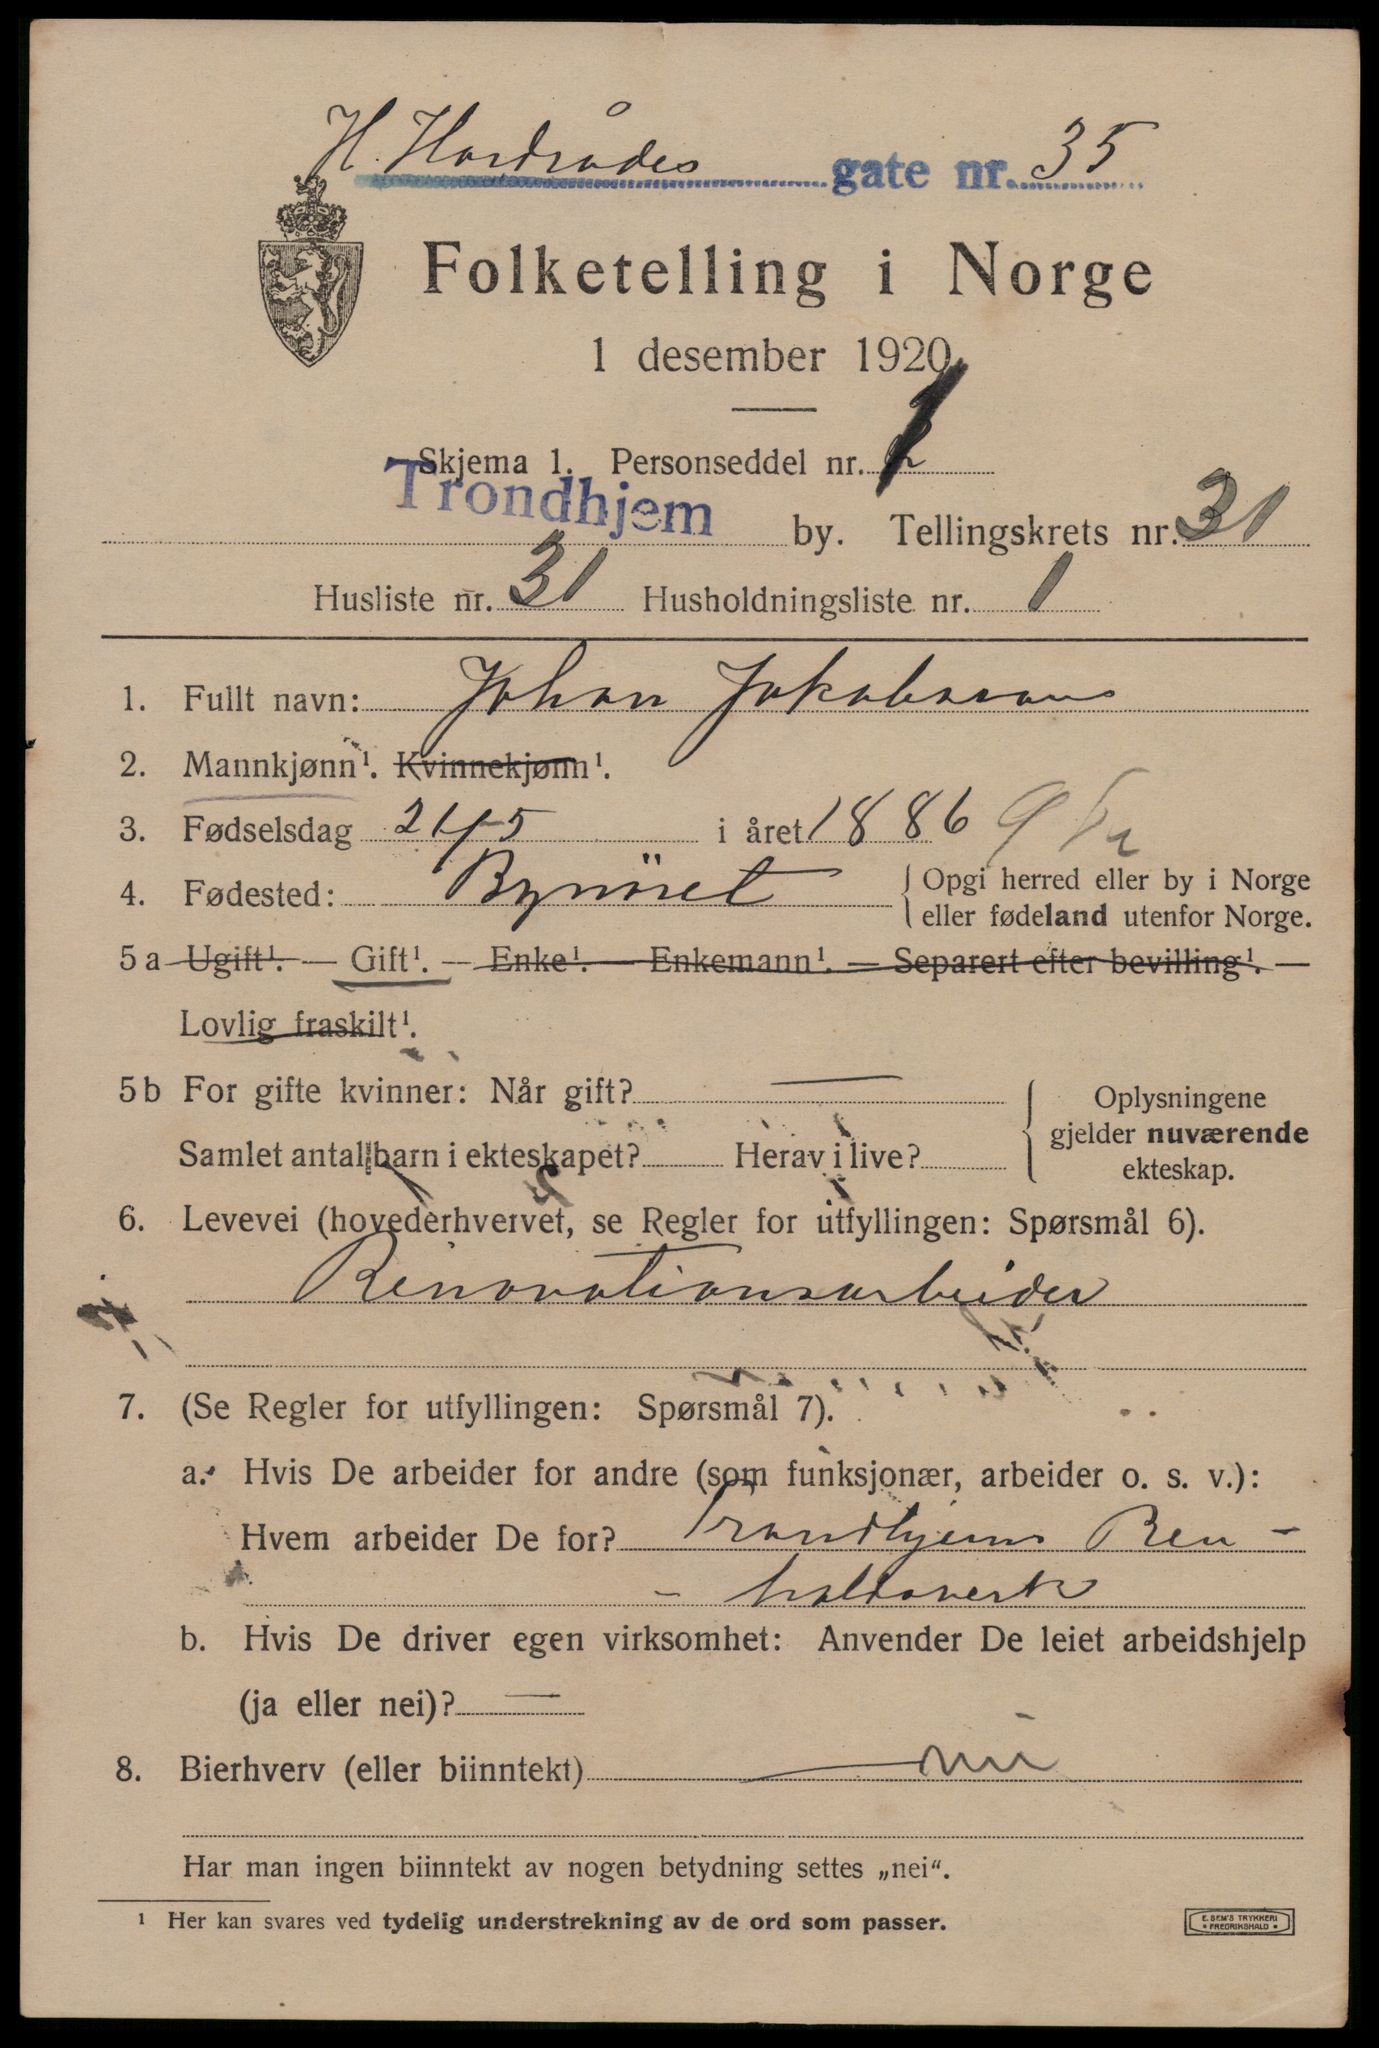 H. Hardrådes gate nr. 35
Folketelling i Norge
1 desember 1920.
Skjema 1. Personseddel nr. 1
Trondhjem by. Tellingskrets nr. 31
Husliste nr. 31 Husholdningsliste nr. 1
1. Fullt navn: Johan Jakobsen
2. Mannkjønn¹. Kvinnekjønn¹.
3. Fødselsdag 24/5 i året 1886
4. Fødested: Bynöset { Opgi herred eller by i Norge
eller fødeland utenfor Norge.
5 a Ugift¹. — Gift¹. — Enke¹. — Enkemann¹. — Separert efter bevilling¹. —
Lovlig fraskilt¹.
5 b For gifte kvinner: Når gift? —
Samlet antall barn i ekteskapet? Herav i live?
{ Oplysningene
gjelder nuværende
ekteskap.
6. Levevei (hovederhvervet, se Regler for utfyllingen: Spørsmål 6).
Renovationsarbeider
7. (Se Regler for utfyllingen: Spørsmål 7).
a. Hvis De arbeider for andre (som funksjonær, arbeider o. s. v.):
Hvem arbeider De for? Trondhjems Ren-
- holdsverk
b. Hvis De driver egen virksomhet: Anvender De leiet arbeidshjelp
(ja eller nei)? —
8. Bierhverv (eller biinntekt) nei
Har man ingen biinntekt av nogen betydning settes „nei“.
¹ Her kan svares ved tydelig understrekning av de ord som passer.
E. SEM'S TRYKKERI
• FREDRIKSHALD •